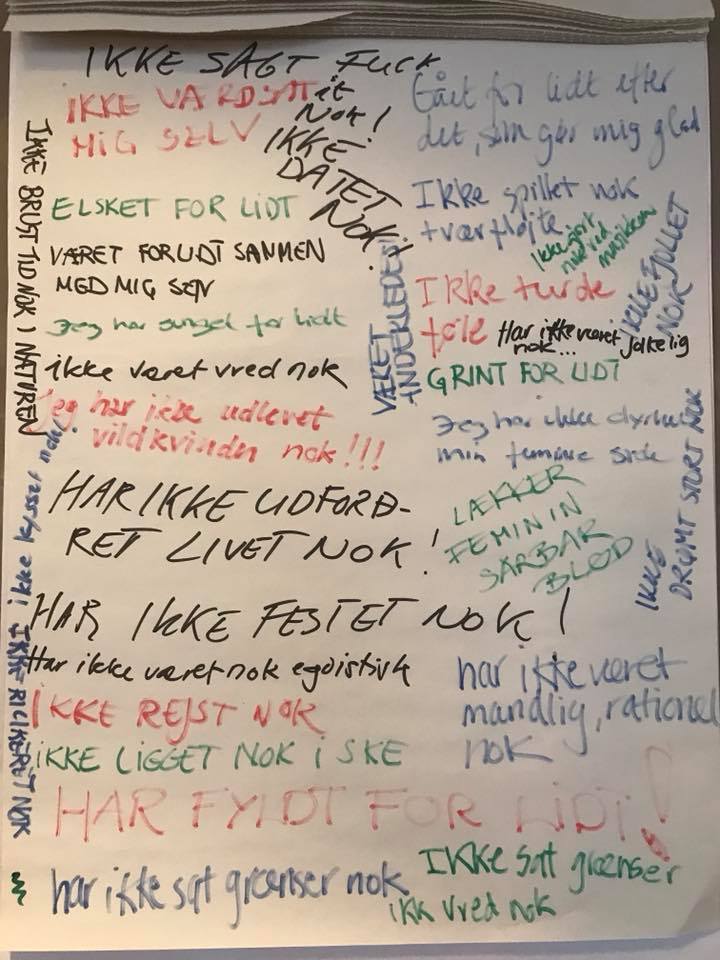 IKKE SAGT FUCK
it
NOK!
IKKE VÆRDSAT
MIG SELV
IKKE
DATET
NOK!
Gået for lidt efter
det, som gør mig glad
IKKE BRUGT TID NOK I NATUREN
ELSKET FOR LIDT
Ikke spillet nok
tværfløjte
Ikke gjort
nok ved
musikken
VÆRET FOR LIDT SAMMEN
MED MIG SELV
VÆRET
ANDERLEDES!
IKKE FJOLLET
NOK
Ikke turde
føle
Har ikke været jalkelig
nok...
Jeg har sunget for lidt
ikke været vred nok
GRINT FOR LIDT
Jeg har ikke udlevet
vildkvinden nok!!!
Jeg har ikke dyrket
min feminine side
HAR IKKE UDFORD-
RET LIVET NOK!
LÆKKER
FEMININ
SÅRBAR
BLØD
IKKE
DRØMT STORT NOK
ikke kysset nok!
IKKE RICIKERET NOK
HAR IKKE FESTET NOK!
Har ikke været nok egoistisk
har ikke været
mandlig, rationel
nok
IKKE REJST NOK
IKKE LIGGET NOK I SKE
HAR FYLDT FOR LIDT!
har ikke sat grænser nok
IKKE sat grænser
ikk vred nok